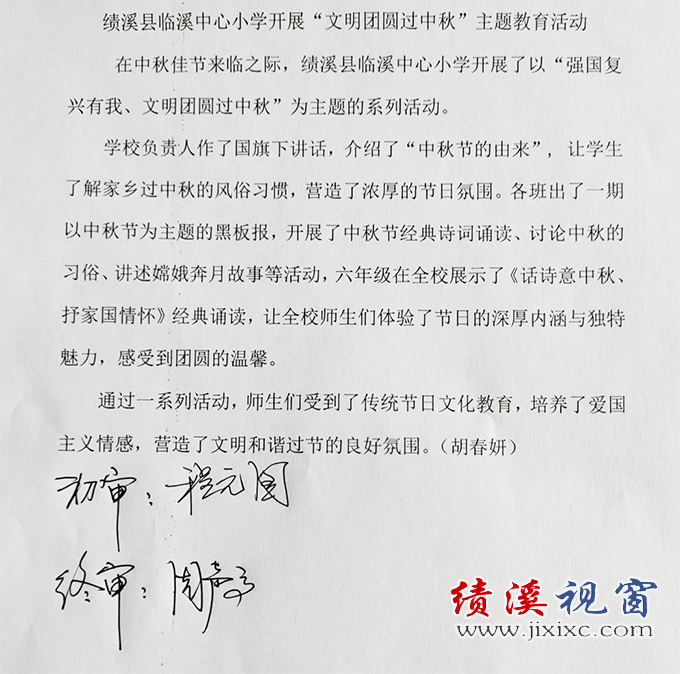 绩溪县临溪中心小学开展“文明团圆过中秋”主题教育活动
在中秋佳节来临之际，绩溪县临溪中心小学开展了以“强国复
兴有我、文明团圆过中秋”为主题的系列活动。
学校负责人作了国旗下讲话，介绍了“中秋节的由来”，让学生
了解家乡过中秋的风俗习惯，营造了浓厚的节日氛围。各班出了一期
以中秋节为主题的黑板报，开展了中秋节经典诗词诵读、讨论中秋的
习俗、讲述嫦娥奔月故事等活动，六年级在全校展示了《话诗意中秋、
抒家国情怀》经典诵读，让全校师生们体验了节日的深厚内涵与独特
魅力，感受到团圆的温馨。
通过一系列活动，师生们受到了传统节日文化教育，培养了爱国
主义情感，营造了文明和谐过节的良好氛围。（胡春妍）
初审：程元国
终审：周
绩溪视窗
www.jixixc.com